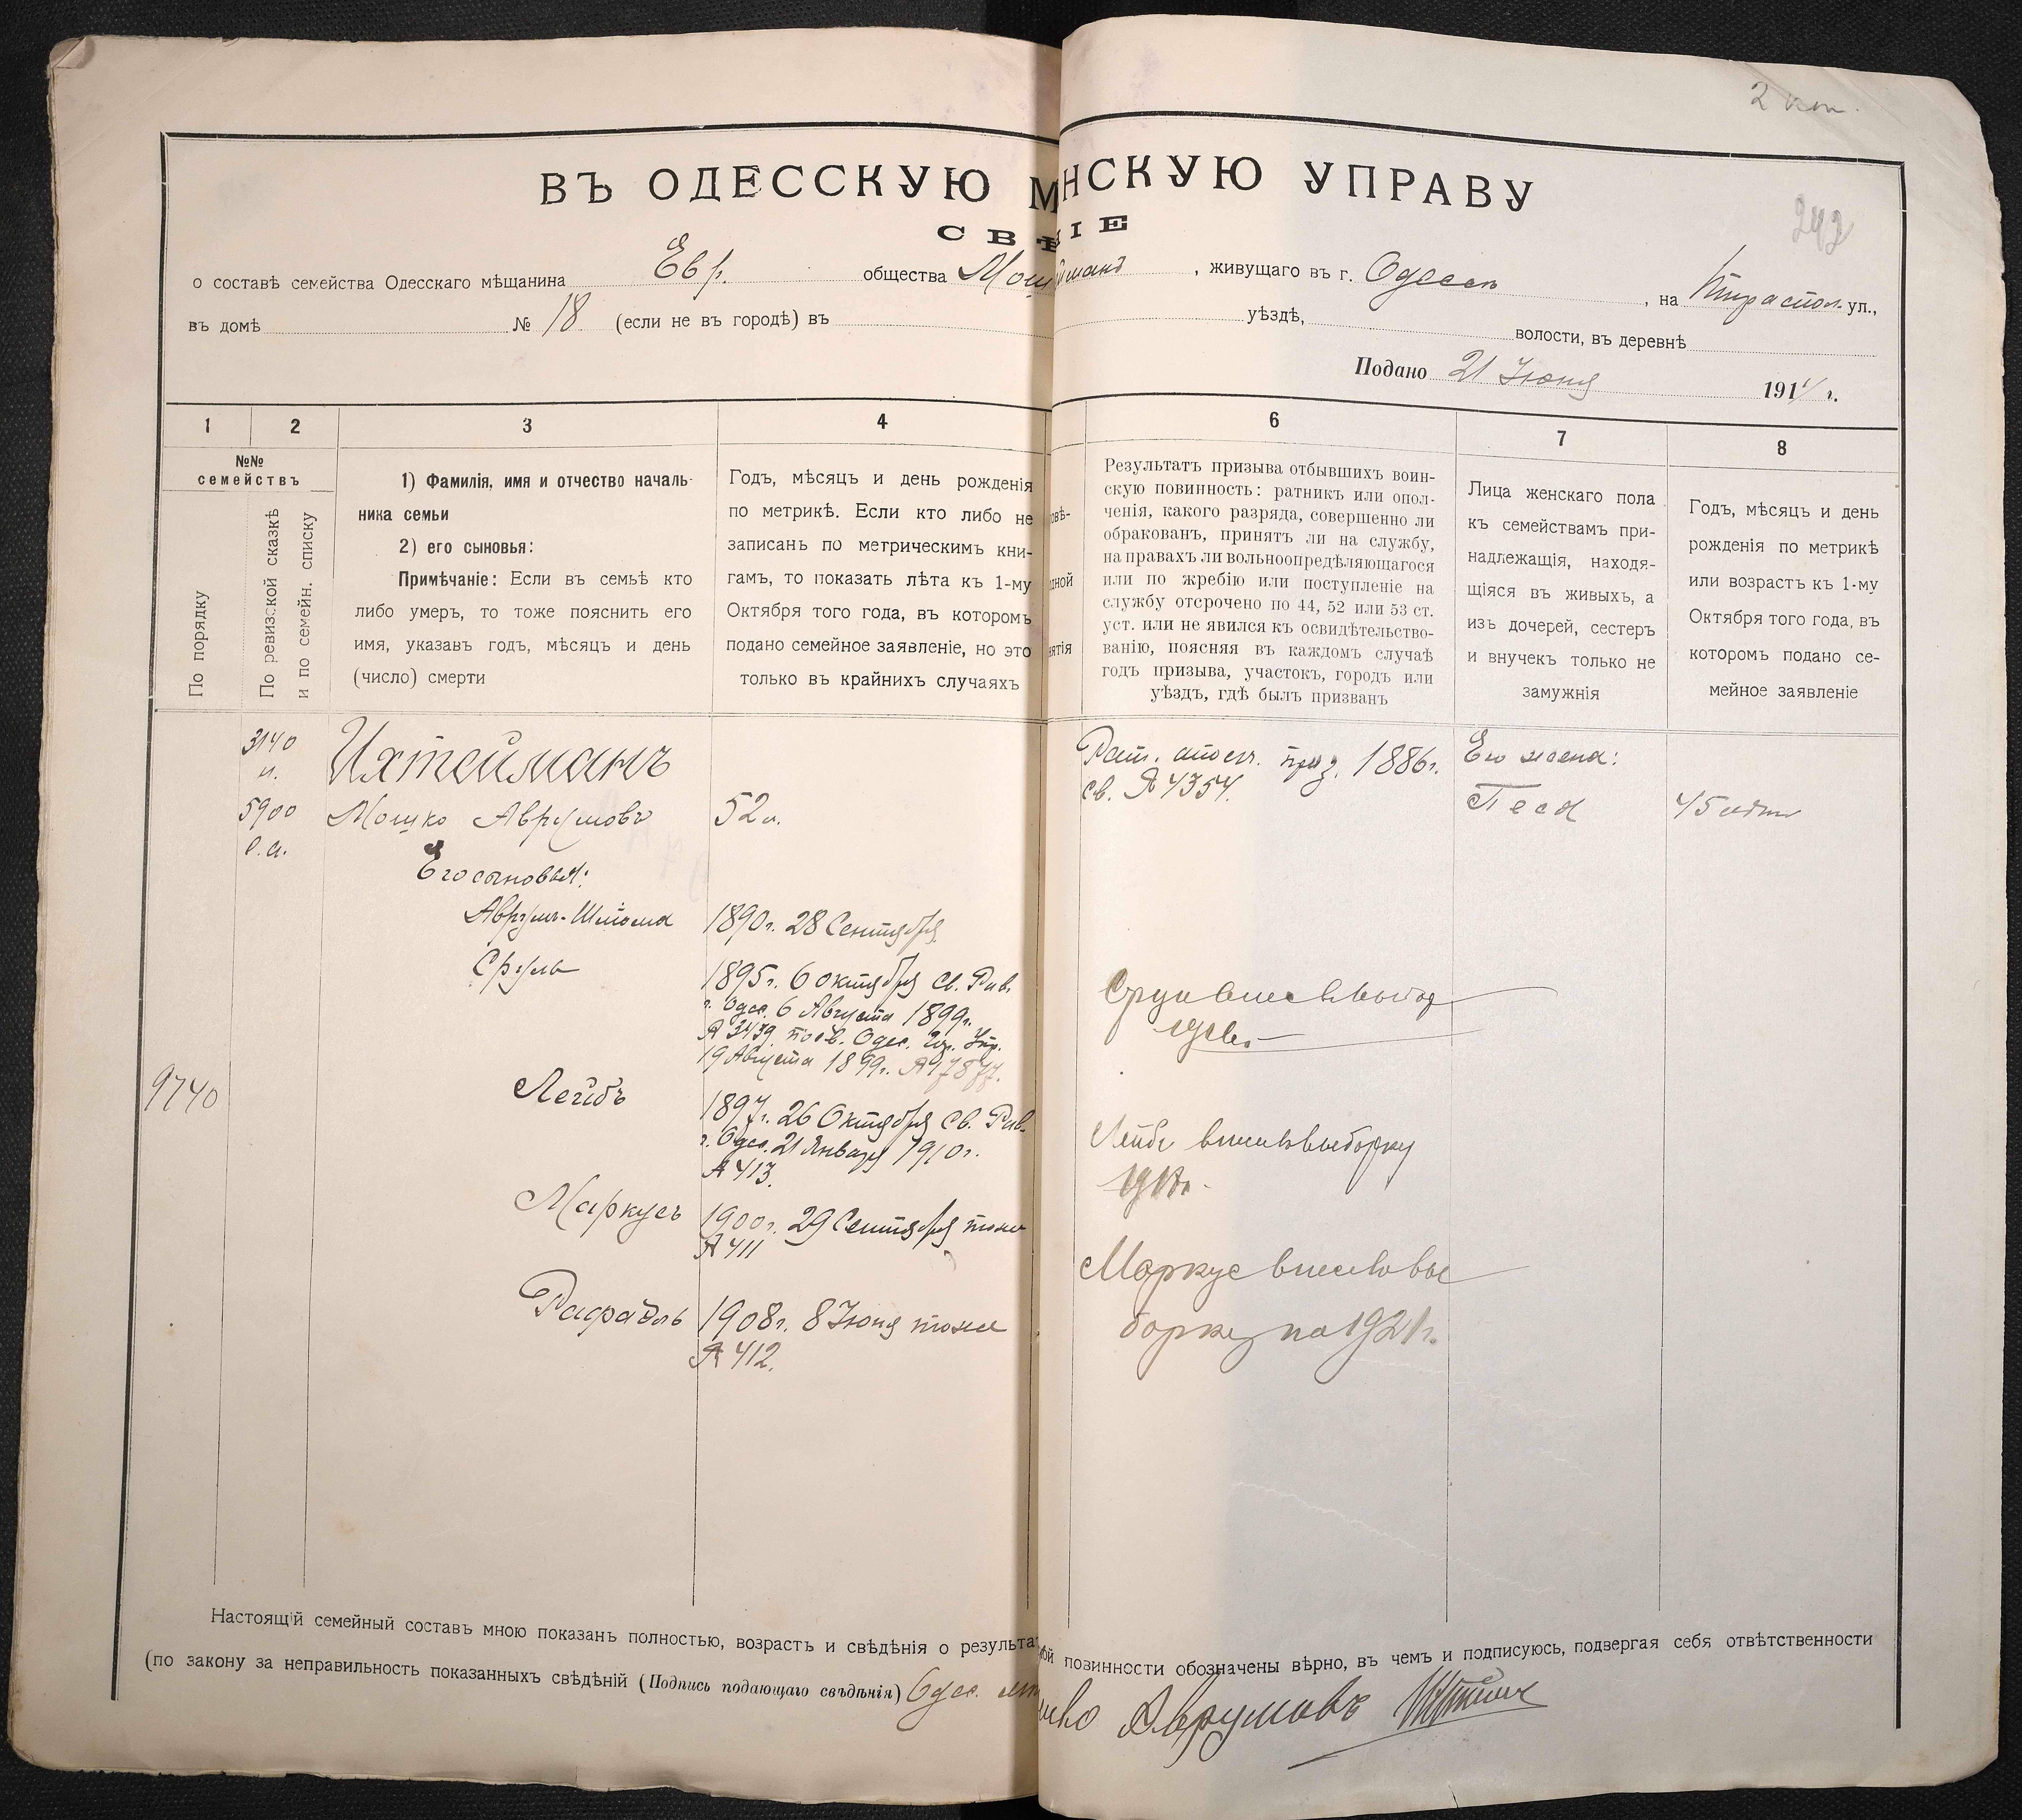 2
ВЪ ОДЕССКУЮ М НСКУЮ УПРАВУ
СВѢ ІЕ
242
о составѣ семейства Одесскаго мѣщанина Евр. общества Мош , живущаго въ г. Одессѣ , на Тираспол. ул.,
въ домѣ № 18 (если не въ городѣ) въ уѣздѣ, волости, въ деревнѣ
Подано 21 Іюня 1914 г.
1 2 3 4 6 7 8
№№
семействъ
По порядку
По ревизской сказкѣ
и по семейн. списку
1) Фамилія, имя и отчество началь-
ника семьи
2) его сыновья:
Примѣчаніе: Если въ семьѣ кто
либо умеръ, то тоже пояснить его
имя, указавъ годъ, мѣсяцъ и день
(число) смерти
Годъ, мѣсяцъ и день рожденія
по метрикѣ. Если кто либо не
записанъ по метрическимъ кни-
гамъ, то показать лѣта къ 1-му
Октября того года, въ которомъ
подано семейное заявленіе, но это
только въ крайнихъ случаяхъ
овѣ-
дной
ятія
Результатъ призыва отбывшихъ воин-
скую повинность: ратникъ или опол-
ченія, какого разряда, совершенно ли
обракованъ, принятъ ли на службу,
на правахъ ли вольноопредѣляющагося
или по жребію или поступленіе на
службу отсрочено по 44, 52 или 53 ст.
уст. или не явился къ освидѣтельство-
ванію, поясняя въ каждомъ случаѣ
годъ призыва, участокъ, городъ или
уѣздъ, гдѣ былъ призванъ
Лица женскаго пола
къ семействамъ при-
надлежащія, находя-
щіяся въ живыхъ, а
изъ дочерей, сестеръ
и внучекъ только не
замужнія
Годъ, мѣсяцъ и день
рожденія по метрикѣ
или возрастъ къ 1-му
Октября того года, въ
которомъ подано се-
мейное заявленіе
3140
5900
9740
Ихтейманъ
Мошко Аврумовъ
Его сыновья:
Аврумъ-Шліома
Сруль
Лейбъ
Маркусъ
Рафаэль
52 л.
1890 г. 28 Сентября
1895 г. 6 октября св. Рав.
г. Одес. 6 Августа 1899 г.
№ 3439 посв. Одес. Гор. Упр.
19 Августа 1899 г.
1897 г. 26 Октября св. Рав.
г. Одес. 21 Января 1910 г.
№ 413.
1900 г. 29 Сентября тоже
№ 411
1908 г. 8 Іюня тоже
№ 412.
Рат. ополч. приз. 1886 г.
св. № 4354.
Лейбъ внесенъ въ выборку
Маркус внесен в вы
борку на 1921 г.
Его жена:
Песя
45 лѣтъ
Настоящій семейный составъ мною показанъ полностью, возрастъ и свѣдѣнія о результа ой повинности обозначены вѣрно, въ чемъ и подписуюсь, подвергая себя отвѣтственности
(по закону за неправильность показанныхъ свѣдѣній (Подпись подающаго свѣдѣнія) Одес. Аврумовъ